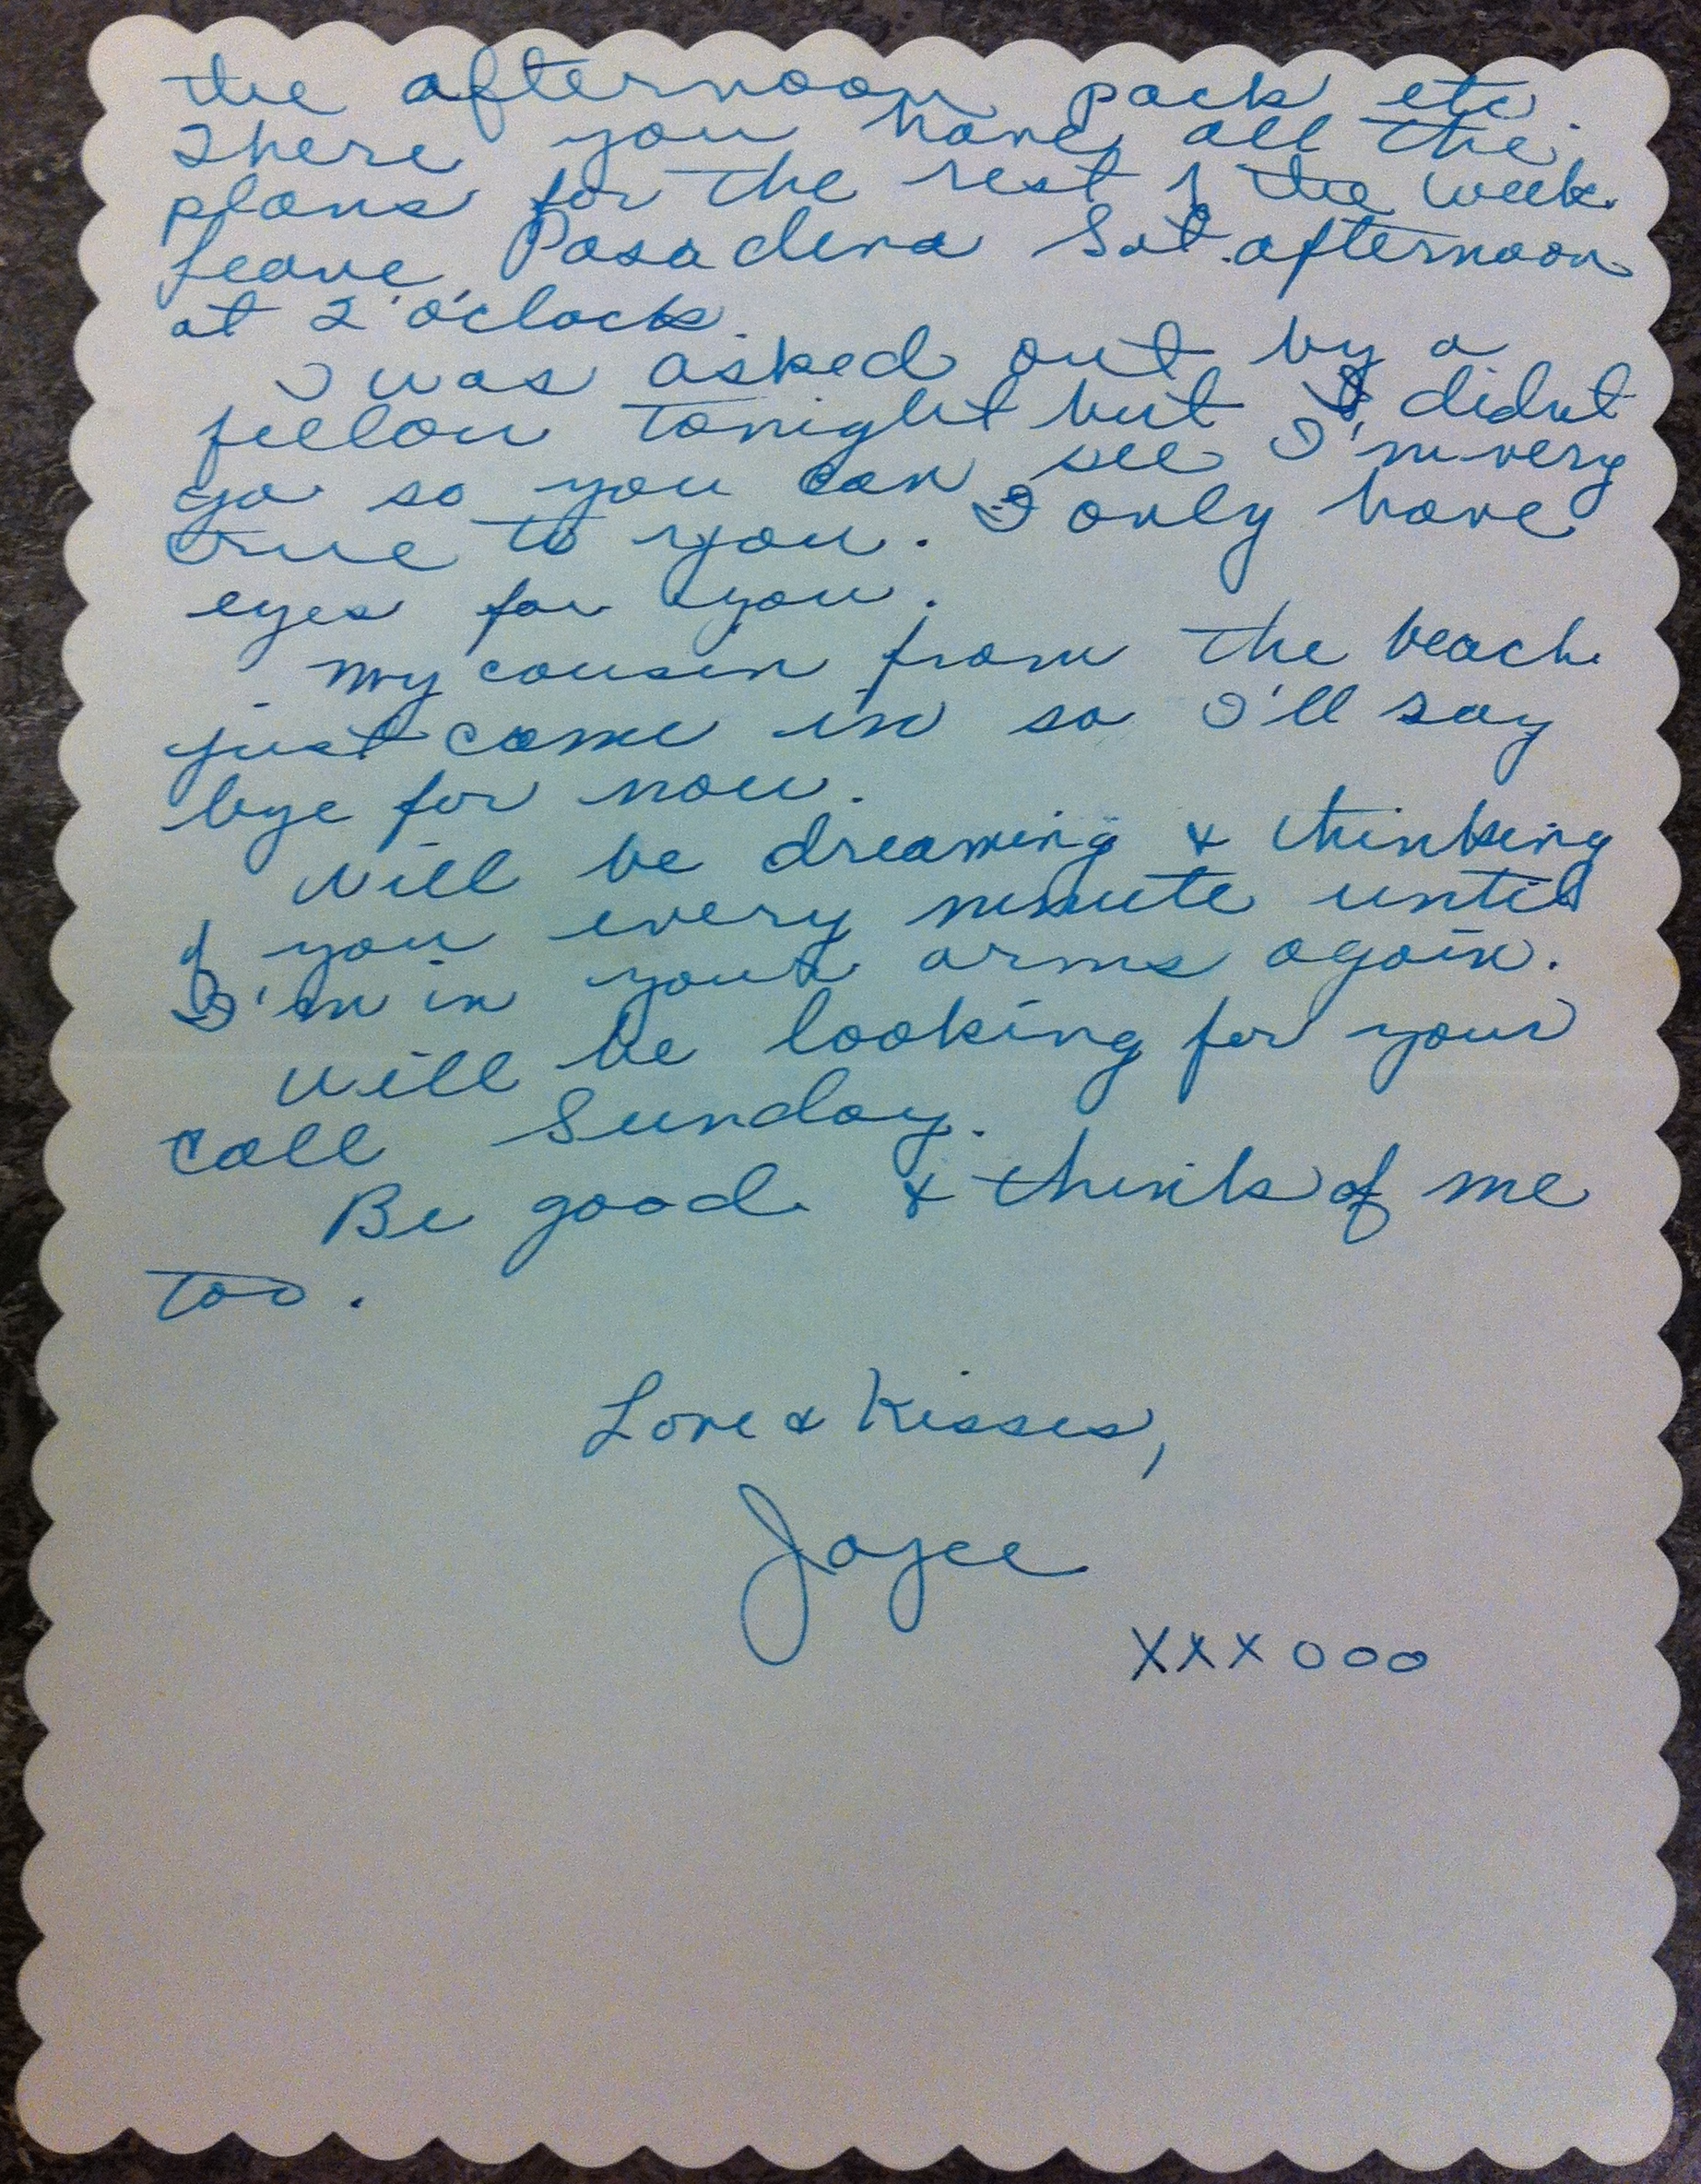 the afternoon pack etc.
There you have all the
plans for the rest of the week.
leave Pasadena Sat. afternoon
at 2 o'clock.
I was asked out by a
fellow tonight but I didn't
go so you can see I'm very
true to you. I only have
eyes for you.
My cousin from the beach
just came in so I'll say
bye for now.
Will be dreaming & thinking
of you every minute until
I'm in your arms again.
Will be looking for your
call Sunday.
Be good & think of me
too.
Love & Kisses,
Joyce
XXXOOO